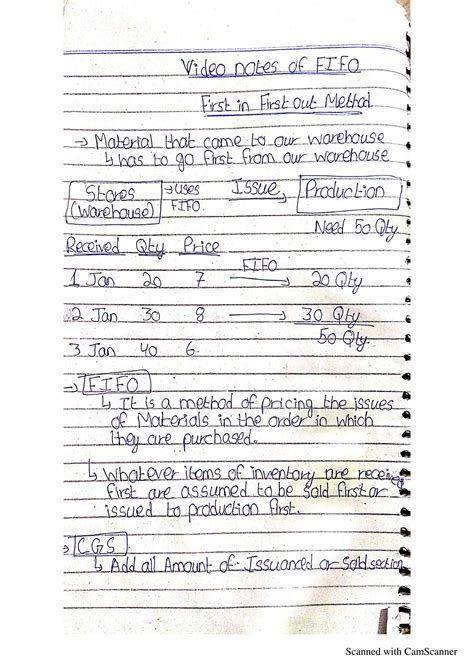 Video notes of FIFO
First in First out Method
→ Material that came to our warehouse
↳ has to go first from our warehouse
Stores → uses Issue Production
(Warehouse) FIFO
Need 50 Qty
Received Qty Price
1 Jan 20 7 FIFO → 20 Qty
2 Jan 30 8 → 30 Qty
50 Qty
3 Jan 40 6
→ FIFO
↳ It is a method of pricing the issues
of Materials in the order in which
they are purchased.
↳ Whatever items of inventory are received
first are assumed to be sold first or
issued to production first.
→ CGS
↳ Add all Amount of Issuanced or Sold section
Scanned with CamScanner